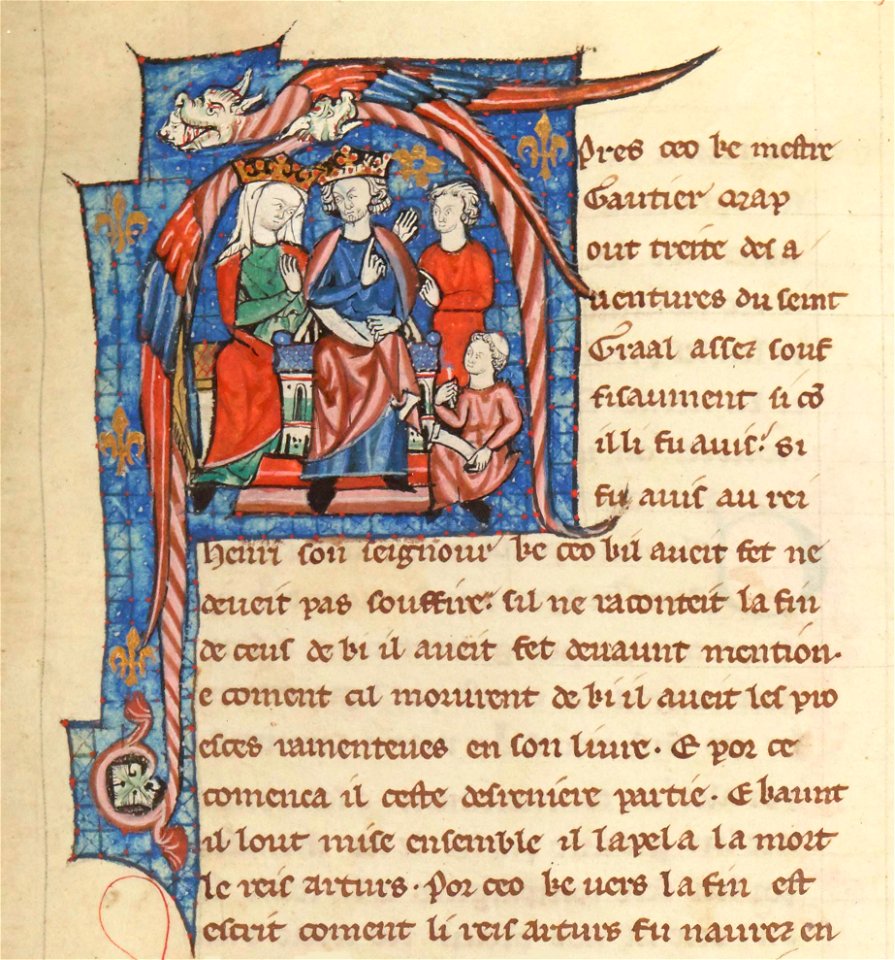 Apres ceo ke mestre
Gautier map
out treite des a
uentures du seint
Graal assez souf
fisaument si cõ
il li fu auis. Si
fu auis au rei
henri son seignour ke ceo kil aueit fet ne
deueit pas souffire. sil ne raconteit la fin
de ceus de ki il aueit fet deuaunt mention.
e coment cil morurent de ki il aueit les pro
esces ramenteues en son liure. E por ce
comenca il ceste desreniere partie. E kaunt
il lout mise ensemble il lapela la mort
le reis arturs. Por ceo ke uers la fin est
escrit coment li reis arturs fu naurez en